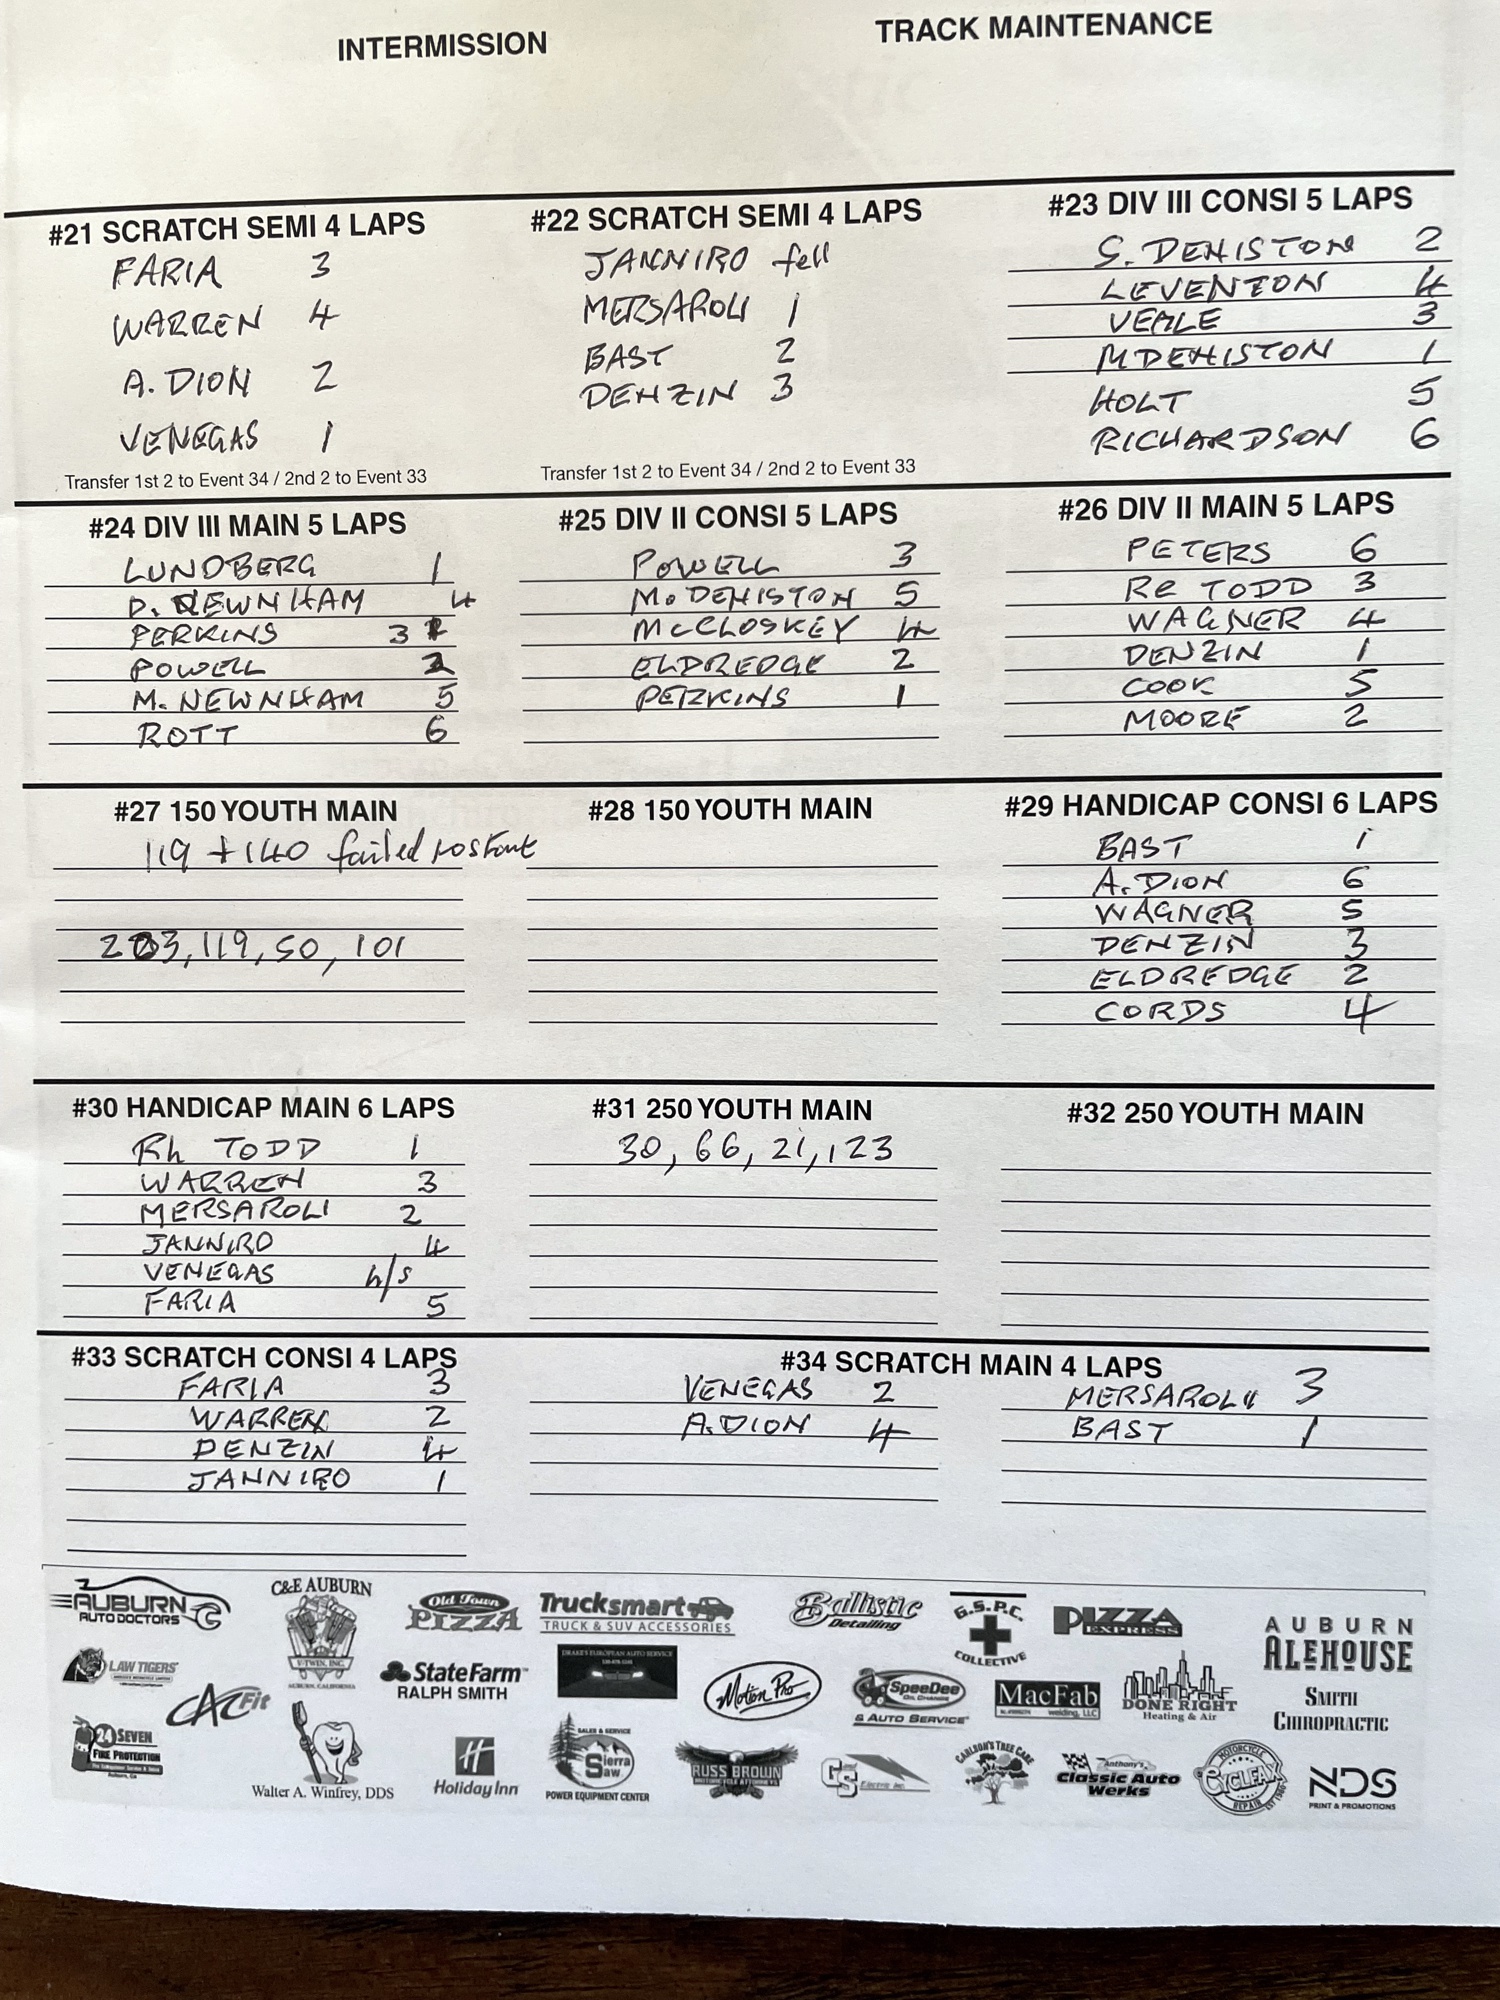 INTERMISSION
TRACK MAINTENANCE
#21 SCRATCH SEMI 4 LAPS
FARIA 3
WARREN 4
A. DION 2
VENEGAS 1
Transfer 1st 2 to Event 34 / 2nd 2 to Event 33
#22 SCRATCH SEMI 4 LAPS
JANNIRO fell
MERSAROLI 1
BAST 2
DENZIN 3
Transfer 1st 2 to Event 34 / 2nd 2 to Event 33
#23 DIV III CONSI 5 LAPS
S. DENISTON 2
LEVENTON 4
VEALE 3
M DENISTON 1
HOLT 5
RICHARDSON 6
#24 DIV III MAIN 5 LAPS
LUNDBERG 1
D. NEWNHAM 4
PERKINS 3
POWELL 2
M. NEWNHAM 5
ROTT 6
#25 DIV II CONSI 5 LAPS
POWELL 3
M. DENISTON 5
MCCLOSKEY 4
ELDREDGE 2
PERKINS 1
#26 DIV II MAIN 5 LAPS
PETERS 6
Re TODD 3
WAGNER 4
DENZIN 1
COOK 5
MOORE 2
#27 150 YOUTH MAIN
119 + 140 failed
119, 50, 101
#28 150 YOUTH MAIN
#29 HANDICAP CONSI 6 LAPS
BAST 1
A. DION 6
WAGNER 5
DENZIN 3
ELDREDGE 2
CORDS 4
#30 HANDICAP MAIN 6 LAPS
Rh TODD 1
WARREN 3
MERSAROLI 2
JANNIRO 4
VENEGAS n/s
FARIA 5
#31 250 YOUTH MAIN
30, 66, 21, 123
#32 250 YOUTH MAIN
#33 SCRATCH CONSI 4 LAPS
FARIA 3
WARREN 2
DENZIN 4
JANNIRO 1
#34 SCRATCH MAIN 4 LAPS
VENEGAS 2
A. DION 4
MERSAROLI 3
BAST 1
AUBURN
AUTO DOCTORS
C&E AUBURN
V-TWIN, INC.
AUBURN, CALIFORNIA
Old Town
PIZZA
Trucksmart
TRUCK & SUV ACCESSORIES
Ballistic
Detailing
G.S.P.C.
COLLECTIVE
PIZZA
EXPRESS
AUBURN
ALEHOUSE
LAW TIGERS
CAC Fit
StateFarm
RALPH SMITH
DRAKE'S EUROPEAN AUTO SERVICE
Motion Pro
SpeeDee
OIL CHANGE
& AUTO SERVICE
MacFab
welding, LLC
DONE RIGHT
Heating & Air
SMITH
CHIROPRACTIC
24 SEVEN
FIRE PROTECTION
Walter A. Winfrey, DDS
Holiday Inn
SALES & SERVICE
Sierra
Saw
POWER EQUIPMENT CENTER
RUSS BROWN
MOTORCYCLE ATTORNEYS
GS
Electric Inc.
CARLSON'S TREE CARE
Anthony's
Classic Auto
Werks
MOTORCYCLE
CYCLEFAX
REPAIR
NDS
PRINT & PROMOTIONS